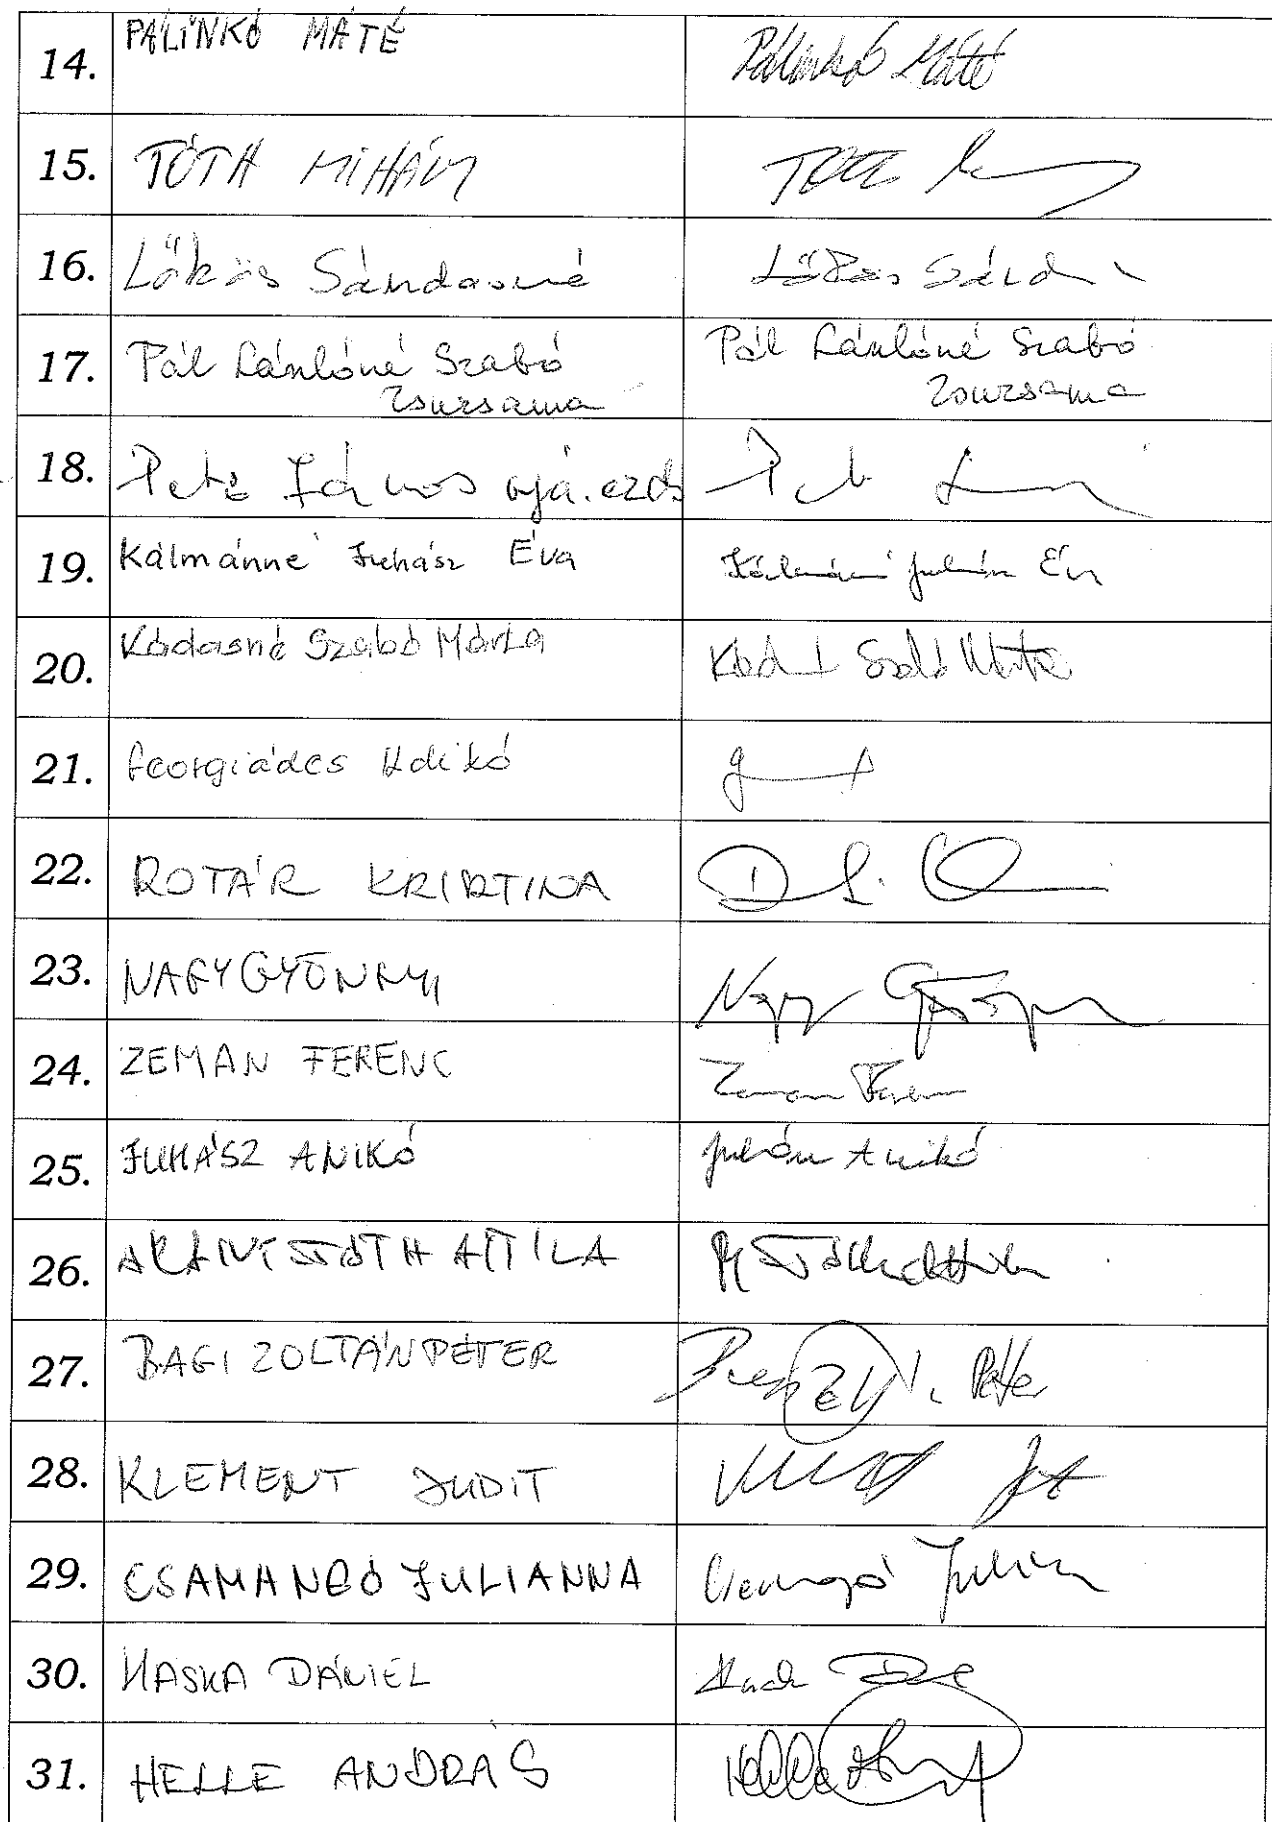 14. PÁLINKÓ MÁTÉ Pálinkó Máté
15. TÓTH MIHÁLY Tóth
16. Lőkös Sándorné Lőkös Sánd
17. Pál Lászlóné Szabó Pál Lászlóné Szabó
Zsuzsanna Zsuzsanna
18. Petz János nyá. ezds
19. Kálmánné Juhász Éva Kálmánné Juhász Éva
20. Kádasné Szabó Márta Szabó Márta
21. Georgiádes Ildikó
22. ROTÁR KRISTINA
23. NAGY GYÖNGYI Nagy Gyöngyi
24. ZEMAN FERENC Zeman Ferenc
25. JUHÁSZ ANIKÓ Juhász Anikó
26. TÓTH ATTILA
27. BAGI ZOLTÁN PÉTER Péter
28. KLEMENT JUDIT
29. CSAMANGÓ JULIANNA Csamangó Julianna
30. HASKA DÁNIEL
31. HELLE ANDRÁS Helle